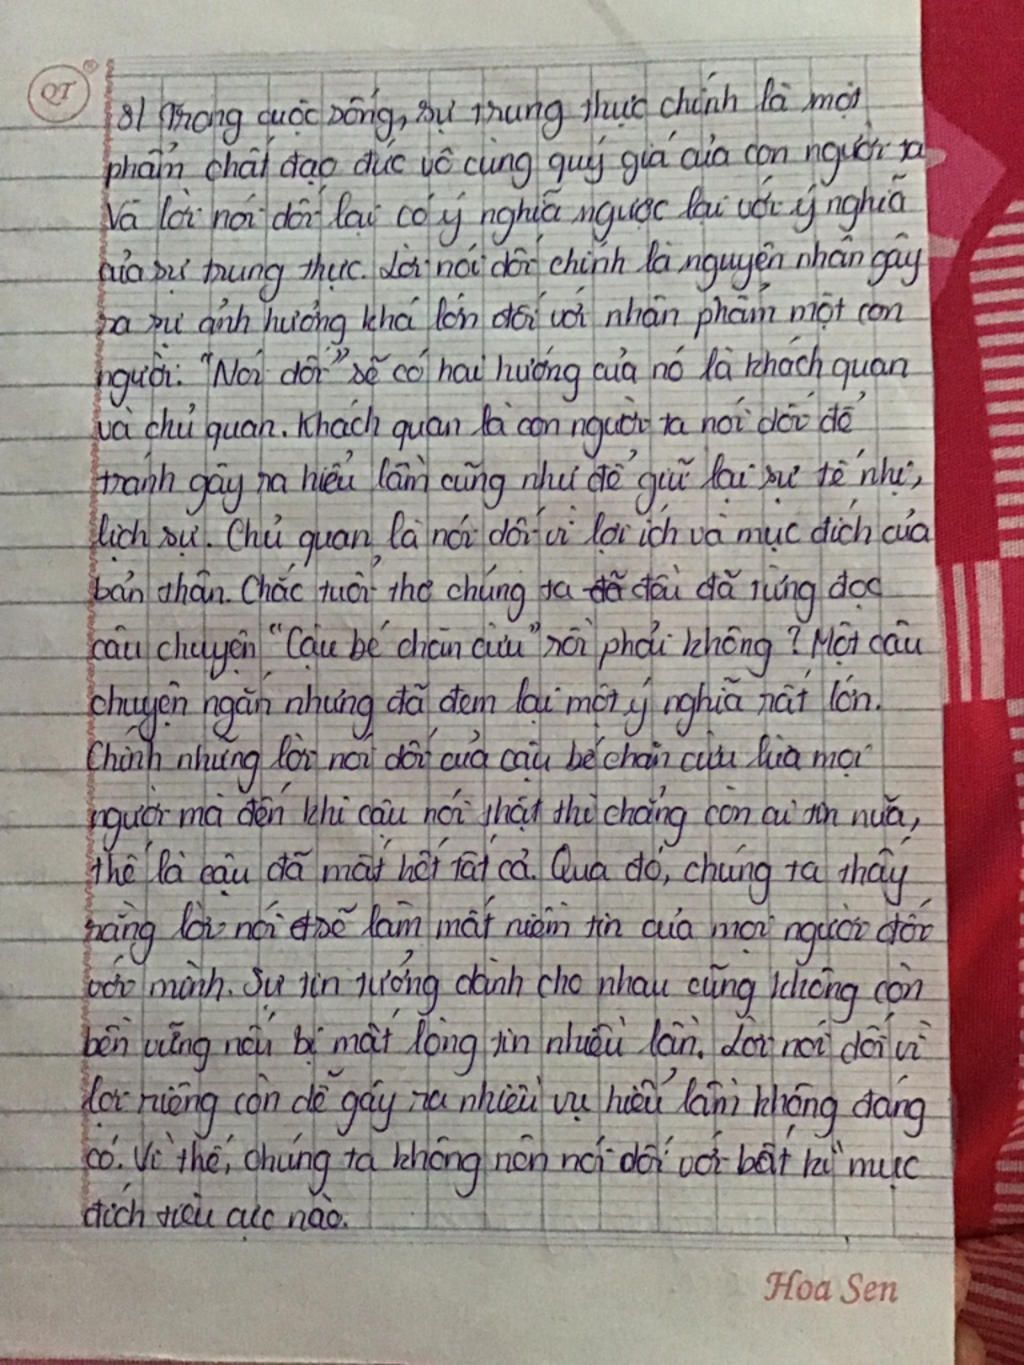 QT
8/ Trong cuộc sống, sự trung thực chính là một
phẩm chất đạo đức vô cùng quý giá của con người ta
Và lời nói dối lại có ý nghĩa ngược lại với ý nghĩa
của sự trung thực. Lời nói dối chính là nguyên nhân gây
ra sự ảnh hưởng khá lớn đối với nhân phẩm một con
người. "Nói dối" sẽ có hai hướng của nó là khách quan
và chủ quan. Khách quan là con người ta nói dối để
tránh gây ra hiểu lầm cũng như để giữ lại sự tế nhị,
lịch sự. Chủ quan là nói dối vì lợi ích và mục đích của
bản thân. Chắc tuổi thơ chúng ta đã đều đã từng đọc
câu chuyện "Cậu bé chăn cừu" rồi phải không? Một câu
chuyện ngắn nhưng đã đem lại một ý nghĩa rất lớn.
Chính những lời nói dối của cậu bé chăn cừu lừa mọi
người mà đến khi cậu nói thật thì chẳng còn ai tin nữa,
thế là cậu đã mất hết tất cả. Qua đó, chúng ta thấy
rằng lời nói sẽ làm mất niềm tin của mọi người đối
với mình. Sự tin tưởng dành cho nhau cũng không còn
bền vững nếu bị mất lòng tin nhiều lần. Lời nói dối vì
lợi riêng còn dễ gây ra nhiều vụ hiểu lầm không đáng
có. Vì thế, chúng ta không nên nói dối với bất kì mục
đích tiêu cực nào.
Hoa Sen